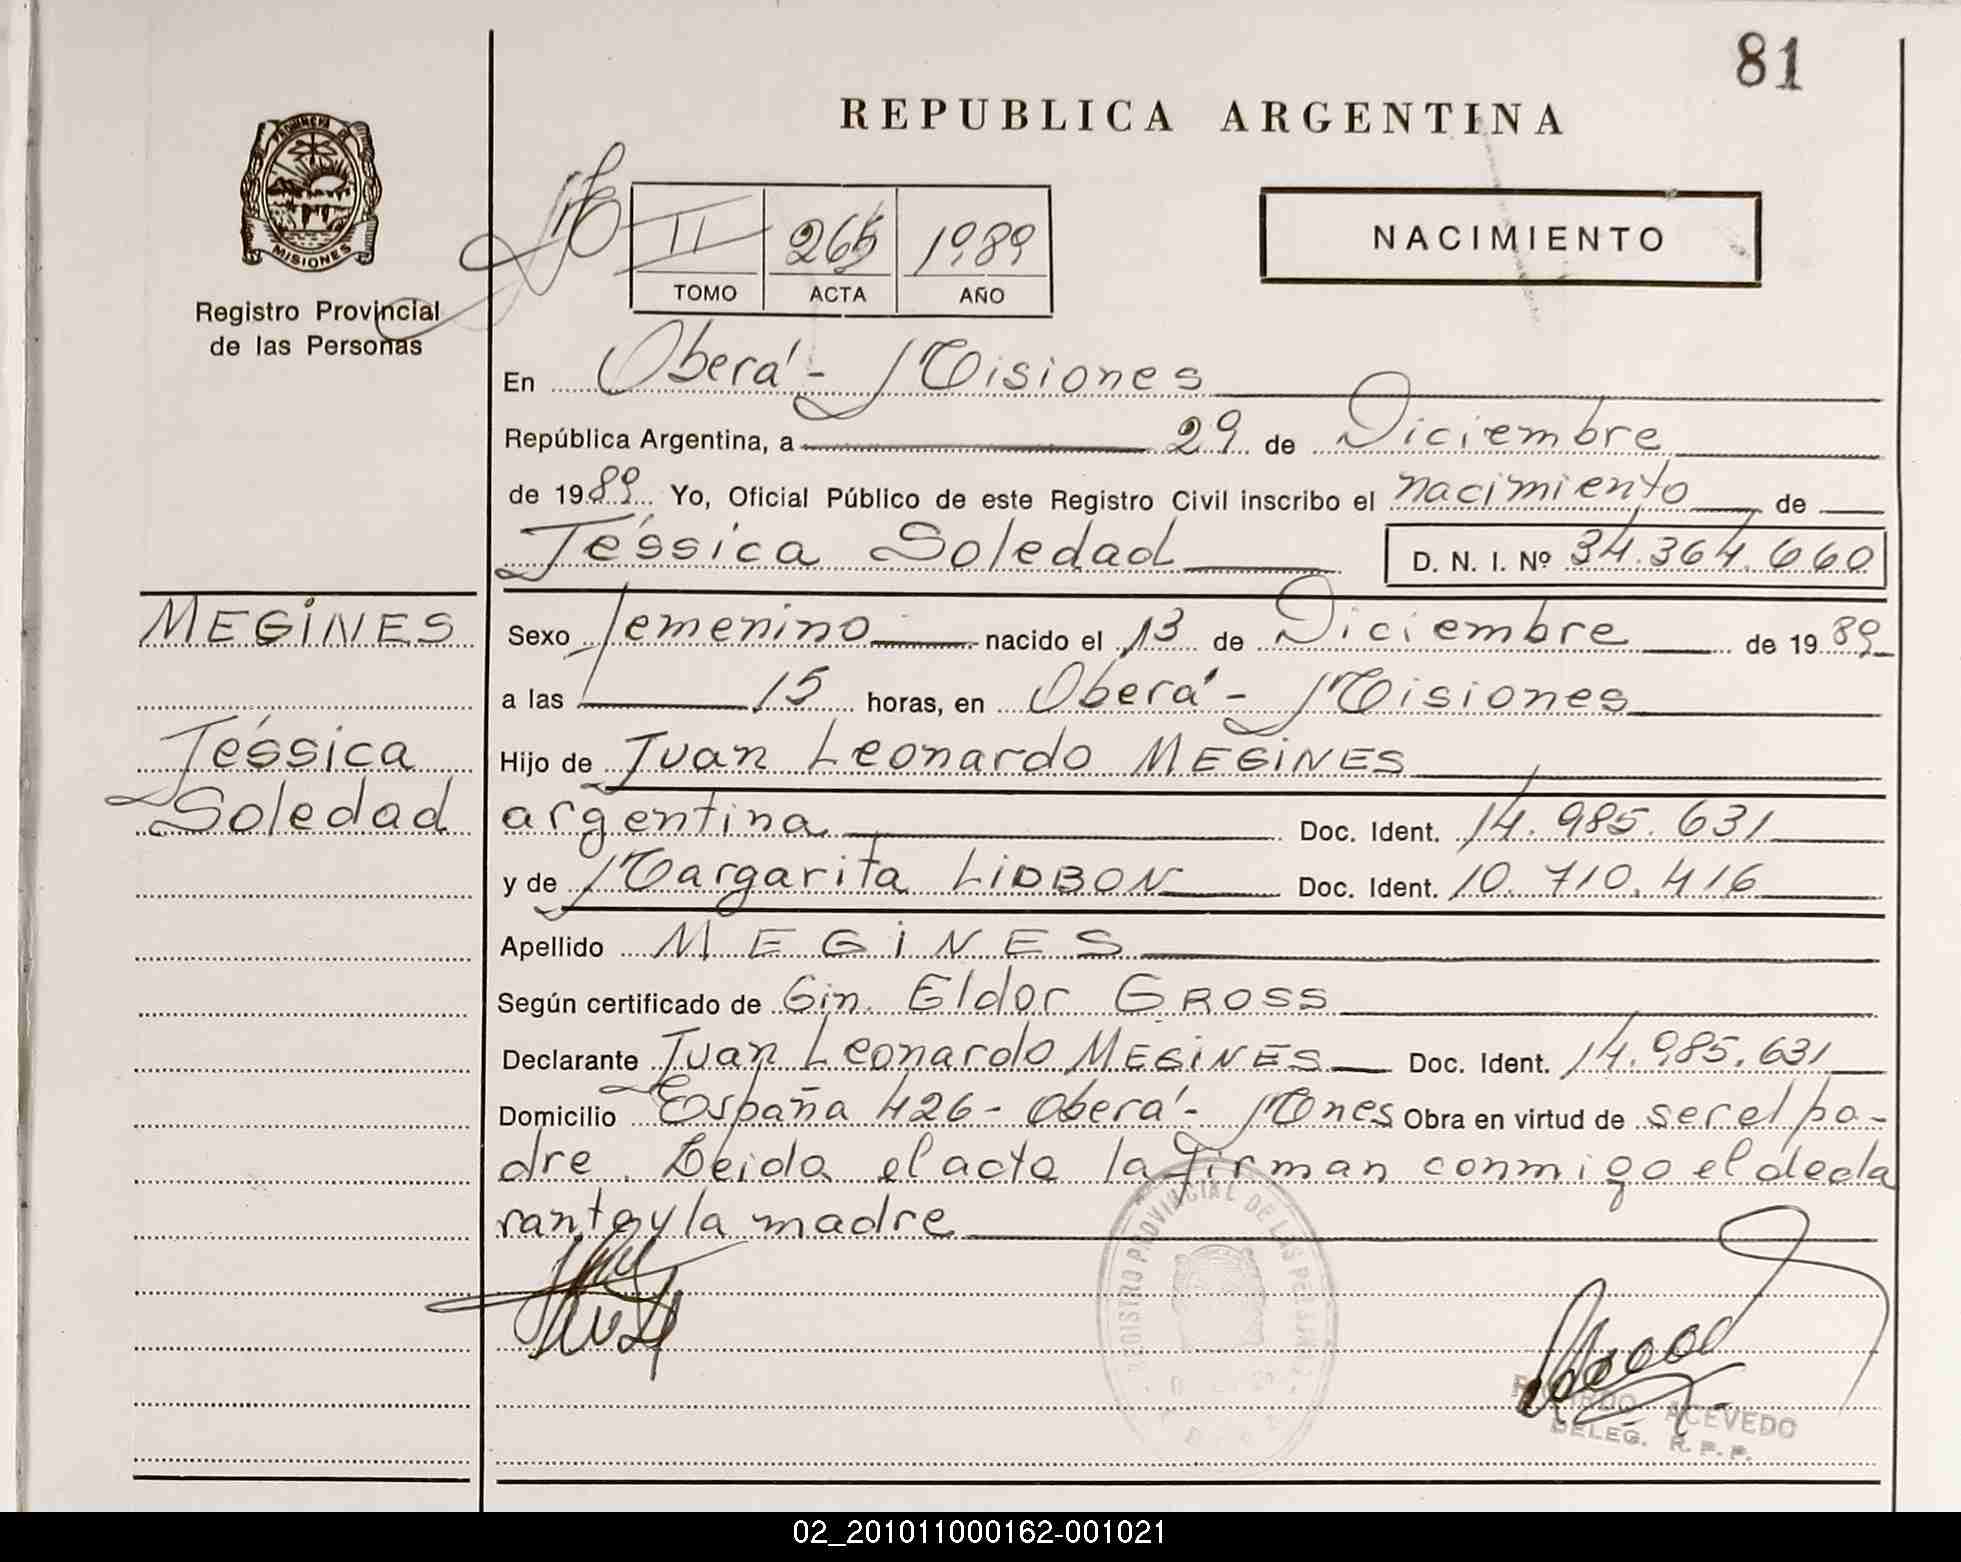 81
REPUBLICA ARGENTINA
PROVINCIA DE
MISIONES
Registro Provincial
de las Personas
II 265 1989
TOMO ACTA AÑO
NACIMIENTO
En Oberá - Misiones
República Argentina, a 29 de Diciembre
de 1989 Yo, Oficial Público de este Registro Civil inscribo el nacimiento de
Jéssica Soledad D. N. I. Nº 34.364.660
MEGINES
Jéssica
Soledad
Sexo femenino nacido el 13 de Diciembre de 1989
a las 15 horas, en Oberá - Misiones
Hijo de Juan Leonardo MEGINES
argentina Doc. Ident. 14.985.631
y de Margarita LIDBON Doc. Ident. 10.710.416
Apellido MEGINES
Según certificado de Gin. Eldor GROSS
Declarante Juan Leonardo MEGINES Doc. Ident. 14.985.631
Domicilio España 426 - Oberá - Mnes Obra en virtud de ser el pa-
dre. Leida el acta la firman conmigo el decla
rante y la madre
REGISTRO PROVINCIAL DE LAS PERSONAS
RICARDO ACEVEDO
DELEG. R. P. P.
02_201011000162-001021